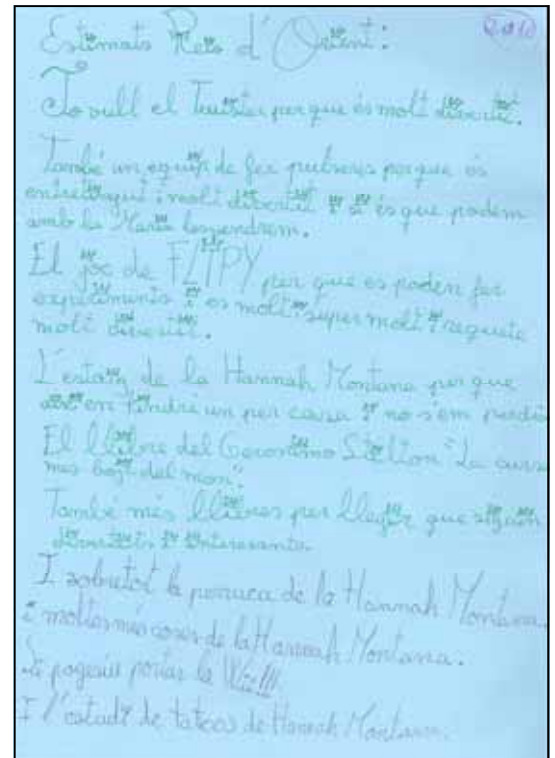 Estimats Reis d'Orient:
2010
Jo vull el Twister per que és molt divertit.
També un equip de fer pulseres perque és
entretingut i molt divertit i si és que podem
amb la Maria les vendrem.
El joc de FLIPY per que es poden fer
experiments i es molt i super molt i requete
molt divertit.
L'estoig de la Hannah Montana per que
en tindré un per casa i no s'em perdi
El llibre del Geronimo Stilton "La cursa
mes boja del mon".
També més llibres per llegir que siguin
divertits i interesants.
I sobretot la perruca de la Hannah Montana.
i moltes més coses de la Hannah Montana.
Si pogesiu portar la Wii!!!
I l'estudi de tatoos de Hannah Montana.